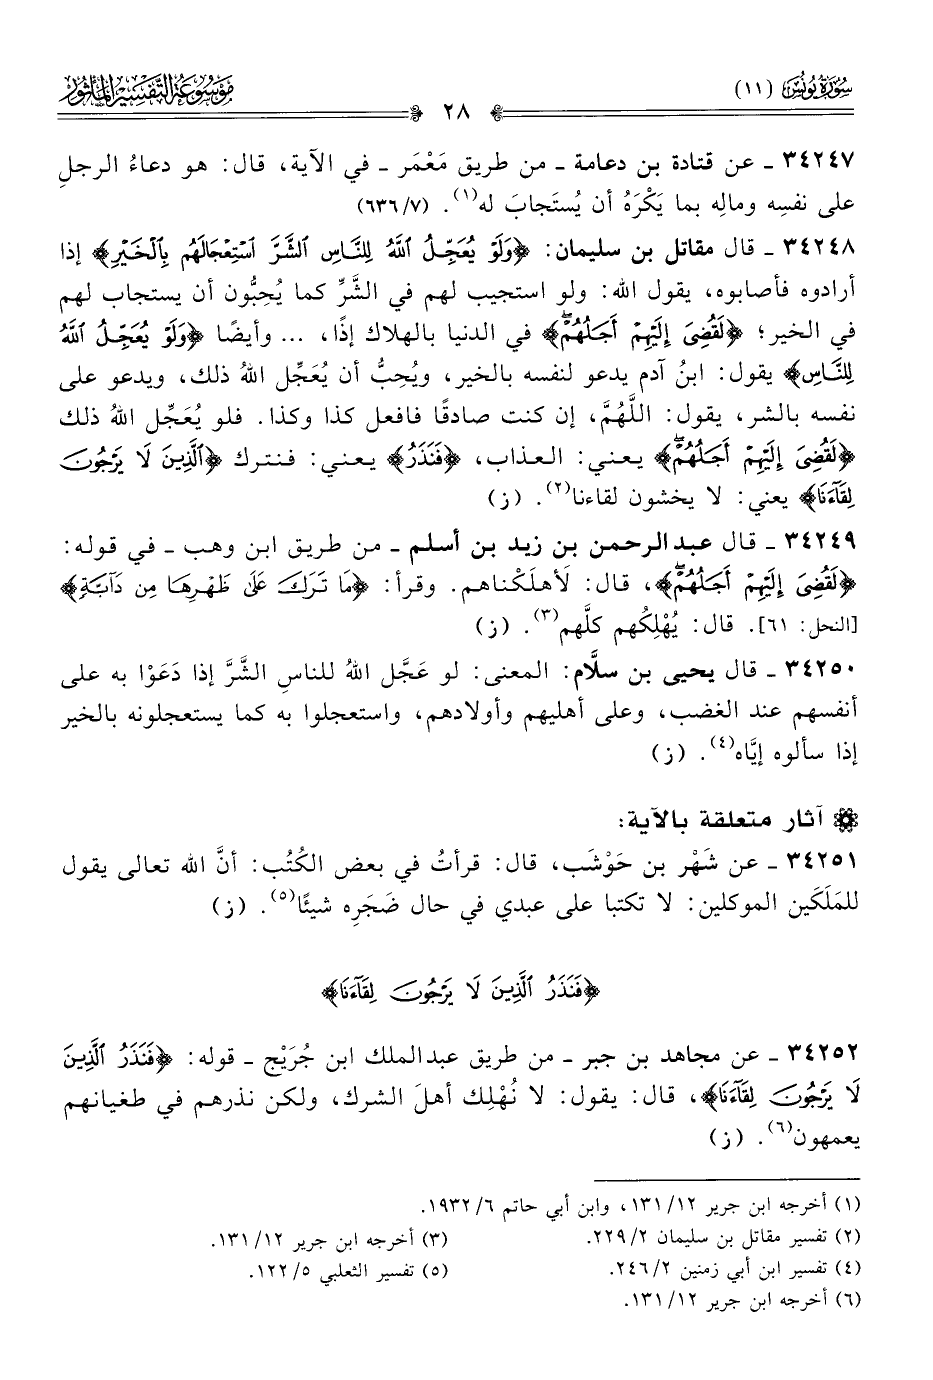 سُورَةُ يُونُسَ (١١)
٢٨
مَوْسُوعَةُ التَّفْسِيرِ المَأْثُورِ
٣٤٢٤٧ ـ عن قتادة بن دعامة ـ من طريق مَعْمَر ـ في الآية، قال: هو دعاءُ الرجلِ
على نفسِه ومالِه بما يَكْرَهُ أن يُستَجابَ له(١). (٦٣٦/٧)
٣٤٢٤٨ ـ قال مقاتل بن سليمان: ﴿وَلَوْ يُعَجِّلُ ٱللَّهُ لِلنَّاسِ ٱلشَّرَّ ٱسْتِعْجَالَهُم بِٱلْخَيْرِ﴾ إذا
أرادوه فأصابوه، يقول الله: ولو استجيب لهم في الشَّرِّ كما يُحِبُّون أن يستجاب لهم
في الخير؛ ﴿لَقُضِىَ إِلَيْهِمْ أَجَلُهُمْۖ﴾ في الدنيا بالهلاك إذًا، ... وأيضًا ﴿وَلَوْ يُعَجِّلُ ٱللَّهُ
لِلنَّاسِ﴾ يقول: ابنُ آدم يدعو لنفسه بالخير، ويُحِبُّ أن يُعَجِّل اللهُ ذلك، ويدعو على
نفسه بالشر، يقول: اللَّهُمَّ، إن كنت صادقًا فافعل كذا وكذا. فلو يُعَجِّل اللهُ ذلك
﴿لَقُضِىَ إِلَيْهِمْ أَجَلُهُمْۖ﴾ يعني: العذاب، ﴿فَنَذَرُ﴾ يعني: فنترك ﴿ٱلَّذِينَ لَا يَرْجُونَ
لِقَآءَنَا﴾ يعني: لا يخشون لقاءنا(٢). (ز)
٣٤٢٤٩ ـ قال عبد الرحمن بن زيد بن أسلم ـ من طريق ابن وهب ـ في قوله:
﴿لَقُضِىَ إِلَيْهِمْ أَجَلُهُمْۖ﴾، قال: لَأهلَكْناهم. وقرأ: ﴿مَا تَرَكَ عَلَىٰ ظَهْرِهَا مِن دَآبَّةٍ﴾
[النحل: ٦١]. قال: يُهْلِكُهم كلَّهم(٣). (ز)
٣٤٢٥٠ ـ قال يحيى بن سلَّام: المعنى: لو عَجَّل اللهُ للناسِ الشَّرَّ إذا دَعَوْا به على
أنفسهم عند الغضب، وعلى أهليهم وأولادهم، واستعجلوا به كما يستعجلونه بالخير
إذا سألوه إيَّاه(٤). (ز)
آثار متعلقة بالآية:
٣٤٢٥١ ـ عن شَهْر بن حَوْشَب، قال: قرأتُ في بعض الكُتُب: أنَّ الله تعالى يقول
للمَلَكَين الموكلين: لا تكتبا على عبدي في حال ضَجَرِه شيئًا(٥). (ز)
﴿فَنَذَرُ ٱلَّذِينَ لَا يَرْجُونَ لِقَآءَنَا﴾
٣٤٢٥٢ ـ عن مجاهد بن جبر ـ من طريق عبد الملك ابن جُرَيْج ـ قوله: ﴿فَنَذَرُ ٱلَّذِينَ
لَا يَرْجُونَ لِقَآءَنَا﴾، قال: يقول: لا نُهْلِك أهلَ الشرك، ولكن نذرهم في طغيانهم
يعمهون(٦). (ز)
(١) أخرجه ابن جرير ١٣١/١٢، وابن أبي حاتم ١٩٣٢/٦.
(٢) تفسير مقاتل بن سليمان ٢٢٩/٢. (٣) أخرجه ابن جرير ١٣١/١٢.
(٤) تفسير ابن أبي زمنين ٢٤٦/٢. (٥) تفسير الثعلبي ١٢٢/٥.
(٦) أخرجه ابن جرير ١٣١/١٢.